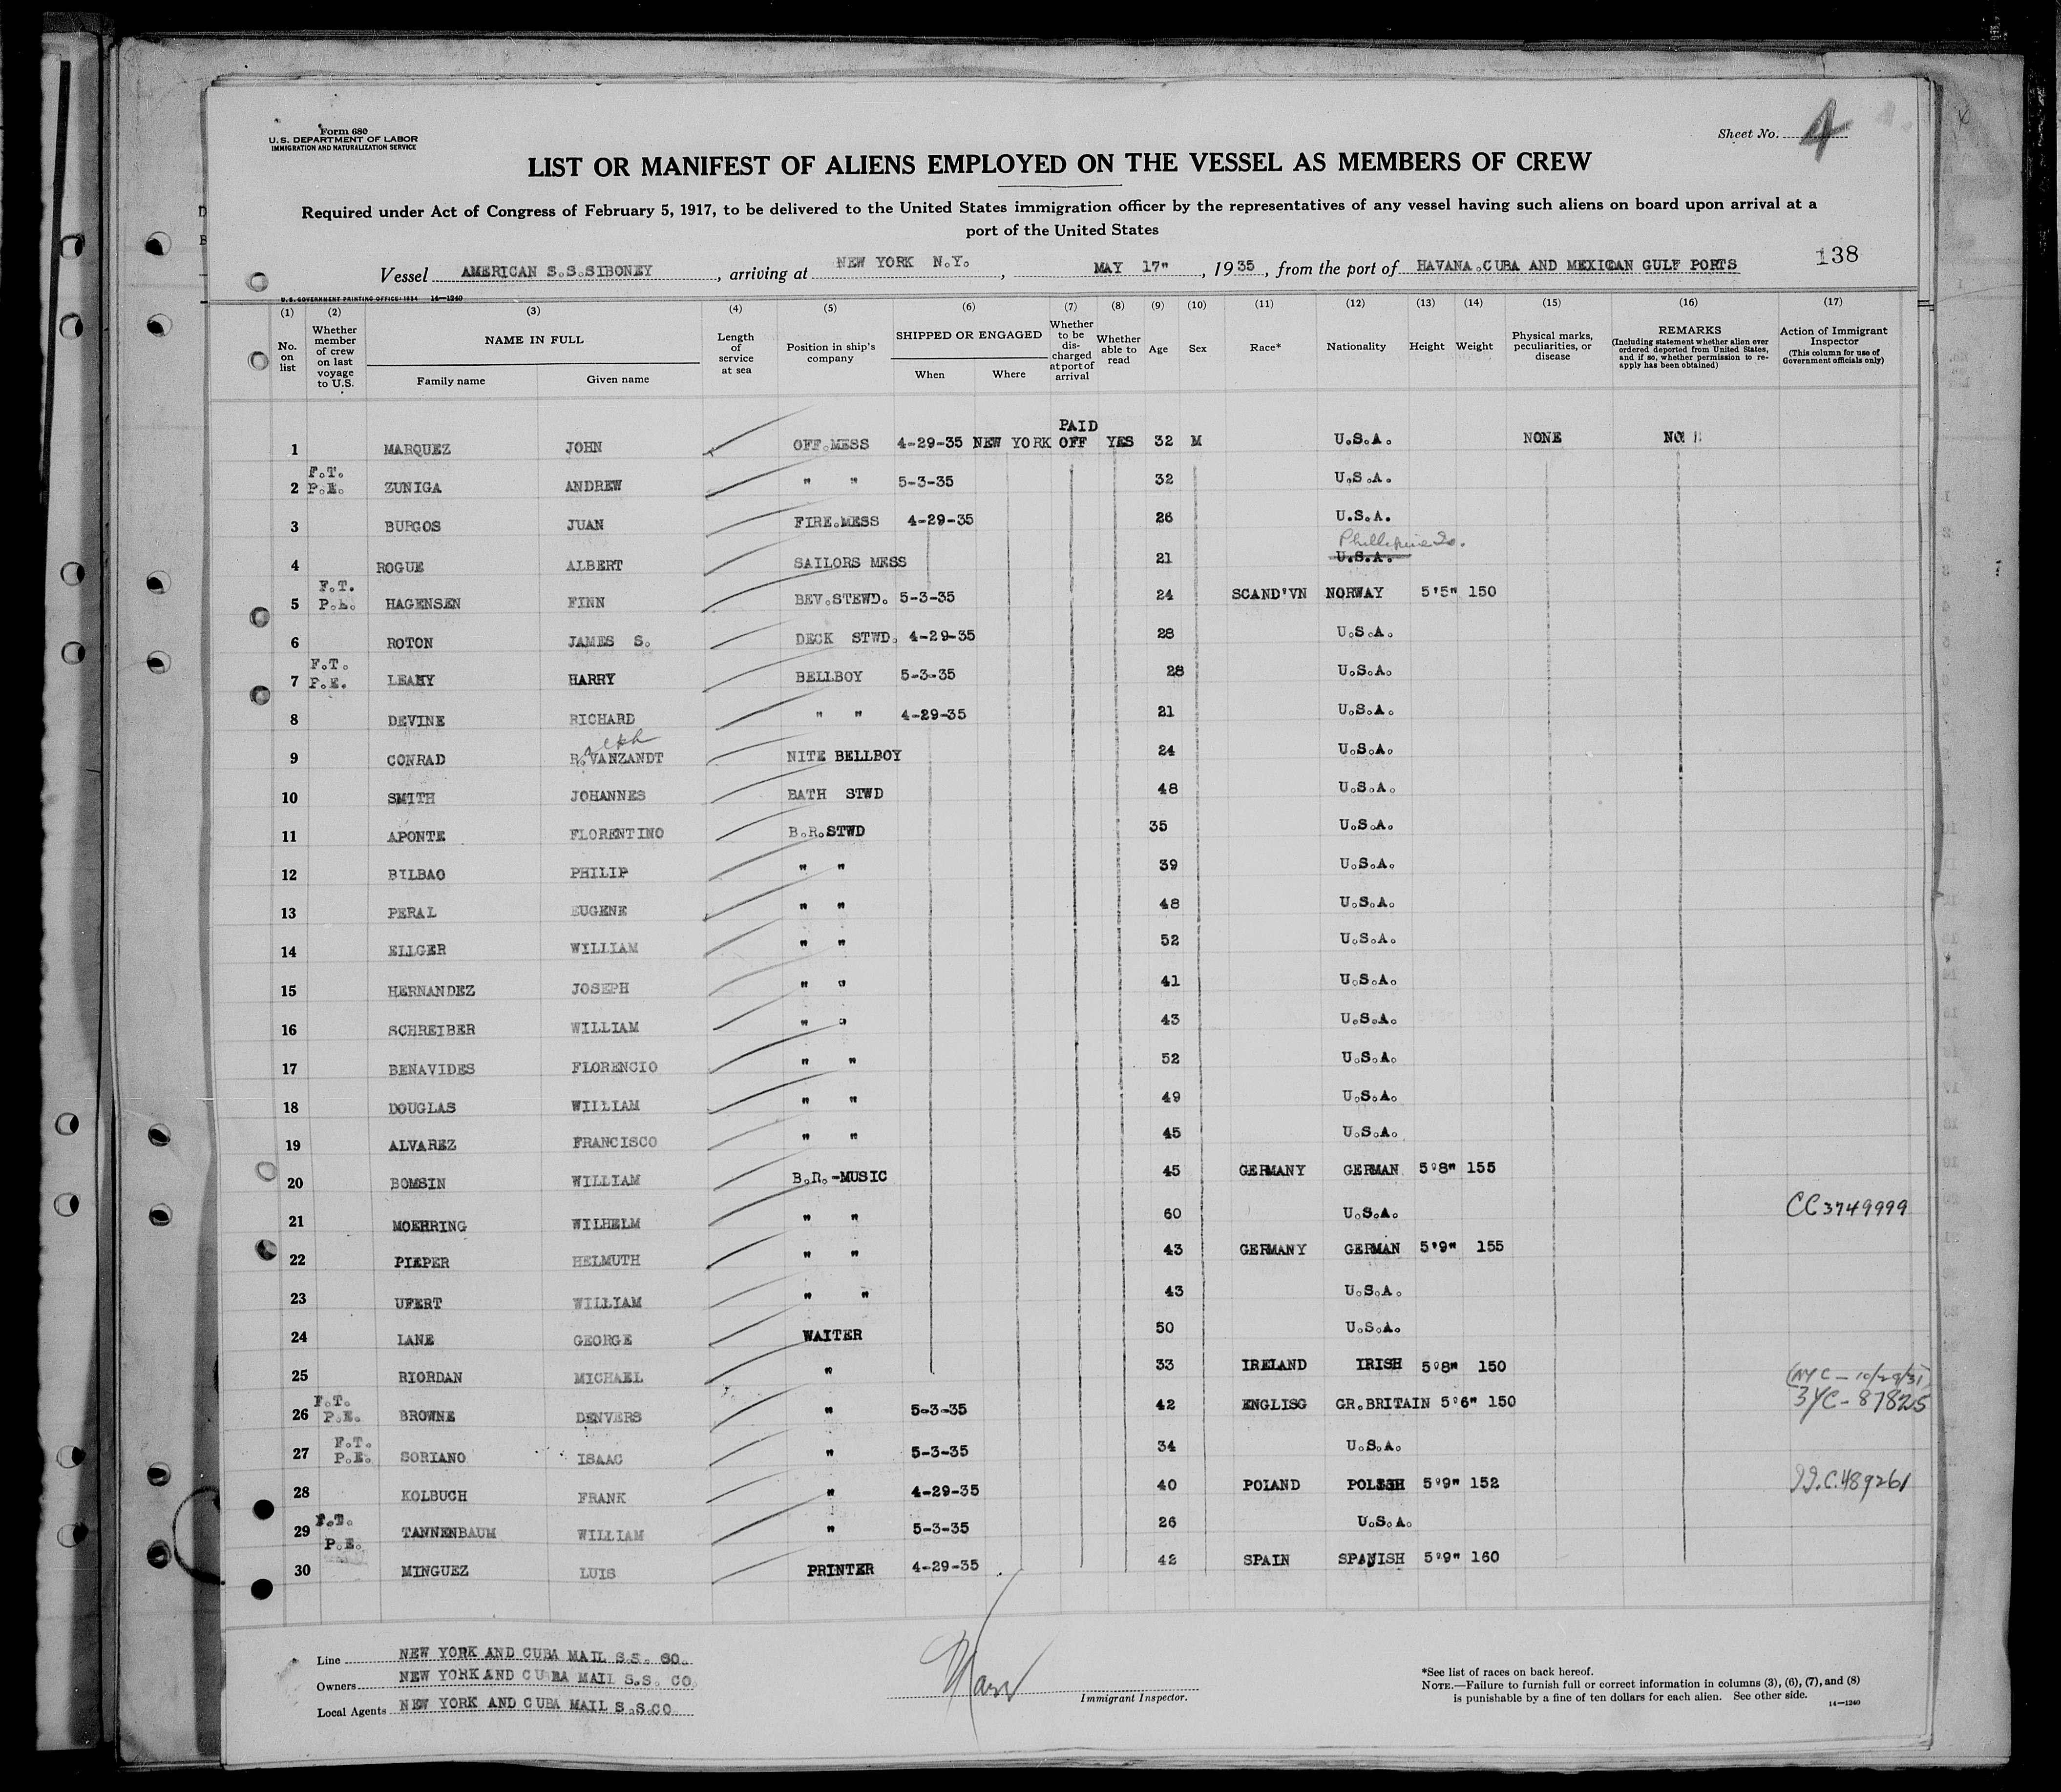 Form 680
U. S. DEPARTMENT OF LABOR
IMMIGRATION AND NATURALIZATION SERVICE
Sheet No. 4
LIST OR MANIFEST OF ALIENS EMPLOYED ON THE VESSEL AS MEMBERS OF CREW
Required under Act of Congress of February 5, 1917, to be delivered to the United States immigration officer by the representatives of any vessel having such aliens on board upon arrival at a
port of the United States
138
Vessel AMERICAN S.S.SIBONEY, arriving at NEW YORK N.Y., MAY 17", 1935, from the port of HAVANA.CUBA AND MEXICAN GULF PORTS
U. S. GOVERNMENT PRINTING OFFICE: 1934 14—1240
(1) (2) (3) (4) (5) (6) (7) (8) (9) (10) (11) (12) (13) (14) (15) (16) (17)
No. on list
Whether member of crew on last voyage to U.S.
NAME IN FULL
Family name Given name
Length of service at sea
Position in ship's company
SHIPPED OR ENGAGED
When Where
Whether to be discharged at port of arrival
Whether able to read
Age
Sex
Race*
Nationality
Height
Weight
Physical marks, peculiarities, or disease
REMARKS
(Including statement whether alien ever ordered deported from United States, and if so, whether permission to reapply has been obtained)
Action of Immigrant Inspector
(This column for use of Government officials only)
1 MARQUEZ JOHN OFF.MESS 4-29-35 NEW YORK PAID OFF YES 32 M U.S.A. NONE
2 F.T. P.E. ZUNIGA ANDREW " " 5-3-35 32 U.S.A.
3 BURGOS JUAN FIRE.MESS 4-29-35 26 U.S.A.
4 ROGUE ALBERT SAILORS MESS 21 U.S.A. Phillipine Is.
5 F.T. P.E. HAGENSEN FINN BEV.STEWD. 5-3-35 24 SCAND'VN NORWAY 5'5" 150
6 ROTON JAMES S. DECK STWD. 4-29-35 28 U.S.A.
7 F.T. P.E. LEAHY HARRY BELLBOY 5-3-35 28 U.S.A.
8 DEVINE RICHARD " " 4-29-35 21 U.S.A.
9 CONRAD R.VANZANDT alph NITE BELLBOY 24 U.S.A.
10 SMITH JOHANNES BATH STWD 48 U.S.A.
11 APONTE FLORENTINO B.R.STWD 35 U.S.A.
12 BILBAO PHILIP " " 39 U.S.A.
13 PERAL EUGENE " " 48 U.S.A.
14 ELLGER WILLIAM " " 52 U.S.A.
15 HERNANDEZ JOSEPH " " 41 U.S.A.
16 SCHREIBER WILLIAM " " 43 U.S.A.
17 BENAVIDES FLORENCIO " " 52 U.S.A.
18 DOUGLAS WILLIAM " " 49 U.S.A.
19 ALVAREZ FRANCISCO " " 45 U.S.A.
20 BOMSIN WILLIAM B.R.-MUSIC 45 GERMANY GERMAN 5'8" 155
21 MOEHRING WILHELM " " 60 U.S.A. CC 3749999
22 PIEPER HELMUTH " " 43 GERMANY GERMAN 5'9" 155
23 UFERT WILLIAM " " 43 U.S.A.
24 LANE GEORGE WAITER 50 U.S.A.
25 RIORDAN MICHAEL " 33 IRELAND IRISH 5'8" 150
(NYC - 10/29/31)
26 F.T. P.E. BROWNE DENVERS " 5-3-35 42 ENGLISG GR.BRITAIN 5'6" 150 3YC-87825
27 F.T. P.E. SORIANO ISAAC " 5-3-35 34 U.S.A.
28 KOLBUCH FRANK " 4-29-35 40 POLAND POLISH 5'9" 152
29 F.T. P.E. TANNENBAUM WILLIAM " 5-3-35 26 U.S.A.
30 MINGUEZ LUIS PRINTER 4-29-35 42 SPAIN SPANISH 5'9" 160
Line NEW YORK AND CUBA MAIL S.S. CO.
Owners NEW YORK AND CUBA MAIL S.S. CO.
Local Agents NEW YORK AND CUBA MAIL S.S.CO
Immigrant Inspector.
*See list of races on back hereof.
NOTE.—Failure to furnish full or correct information in columns (3), (6), (7), and (8)
is punishable by a fine of ten dollars for each alien. See other side.
14—1240